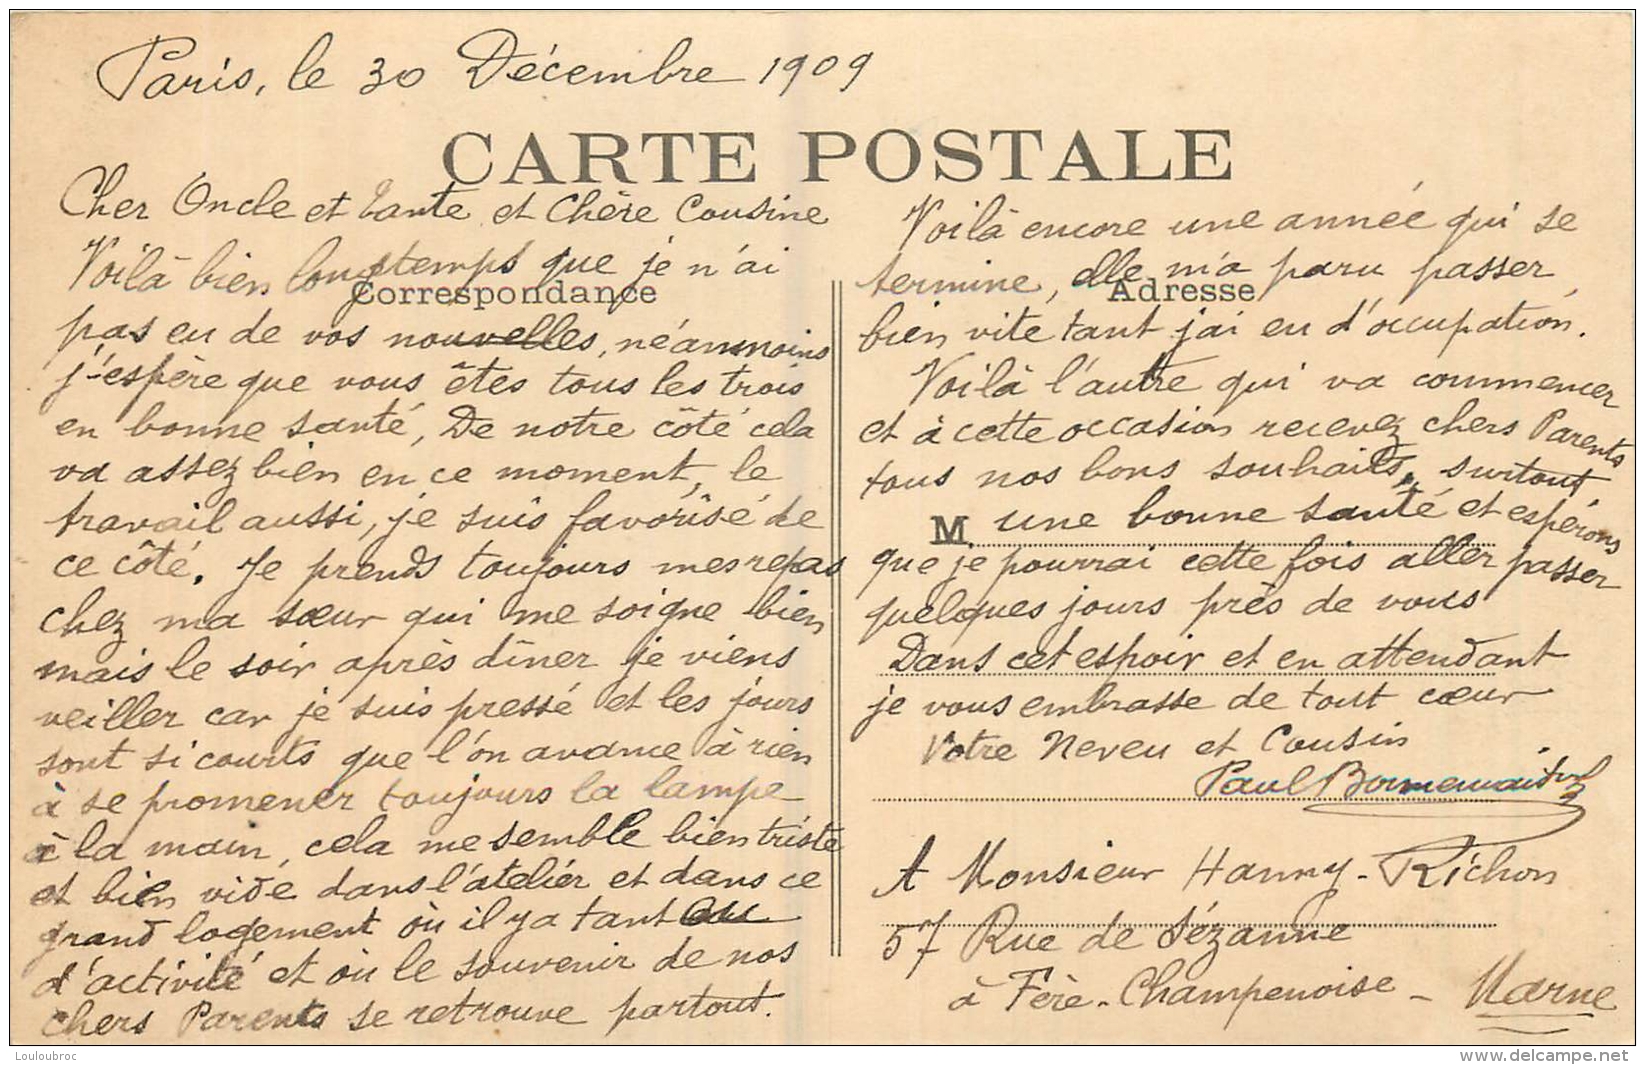 Paris, le 30 Décembre 1909
CARTE POSTALE
Cher Oncle et tante et Chère Cousine
Voilà bien longtemps que je n'ai
Correspondance
pas eu de vos nouvelles, néanmoins
j'espère que vous êtes tous les trois
en bonne santé, De notre côté cela
va assez bien en ce moment, le
travail aussi, je suis favorisé de
ce côté. Je prends toujours mes repas
chez ma sœur qui me soigne bien
mais le soir après dîner je viens
veiller car je suis pressé et les jours
sont si courts que l'on avance à rien
à se promener toujours la lampe
à la main, cela me semble bien triste
et bien vide dans l'atelier et dans ce
grand logement où il y a tant eu
d'activité et où le souvenir de nos
chers Parents se retrouve partout.
Voilà encore une année qui se
termine, elle m'a paru passer
Adresse
bien vite tant j'ai eu d'occupation.
Voilà l'autre qui va commencer
et à cette occasion recevez chers Parents
tous nos bons souhaits, surtout
M une bonne santé et espérons
que je pourrai cette fois aller passer
quelques jours près de vous
Dans cet espoir et en attendant
je vous embrasse de tout cœur
Votre Neveu et Cousin
Paul
A Monsieur Hanny-Richon
57 Rue de Sézanne
à Fère-Champenoise - Marne
Louloubroc
www.delcampe.net